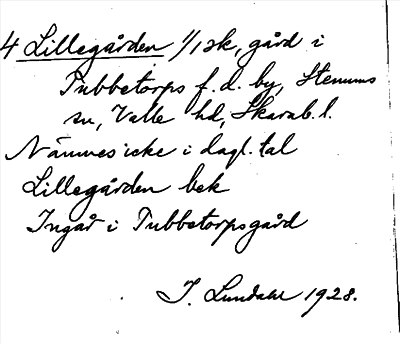 4 Lillegården 1/1 sk, gård i
Tubbetorps f.d. by, Stenums
sn, Valle hd, Skarab. l.
Nämnes icke i dagl. tal
Lillegården bek
Ingår i Tubbetorpsgård
I. Lundahl 1928.